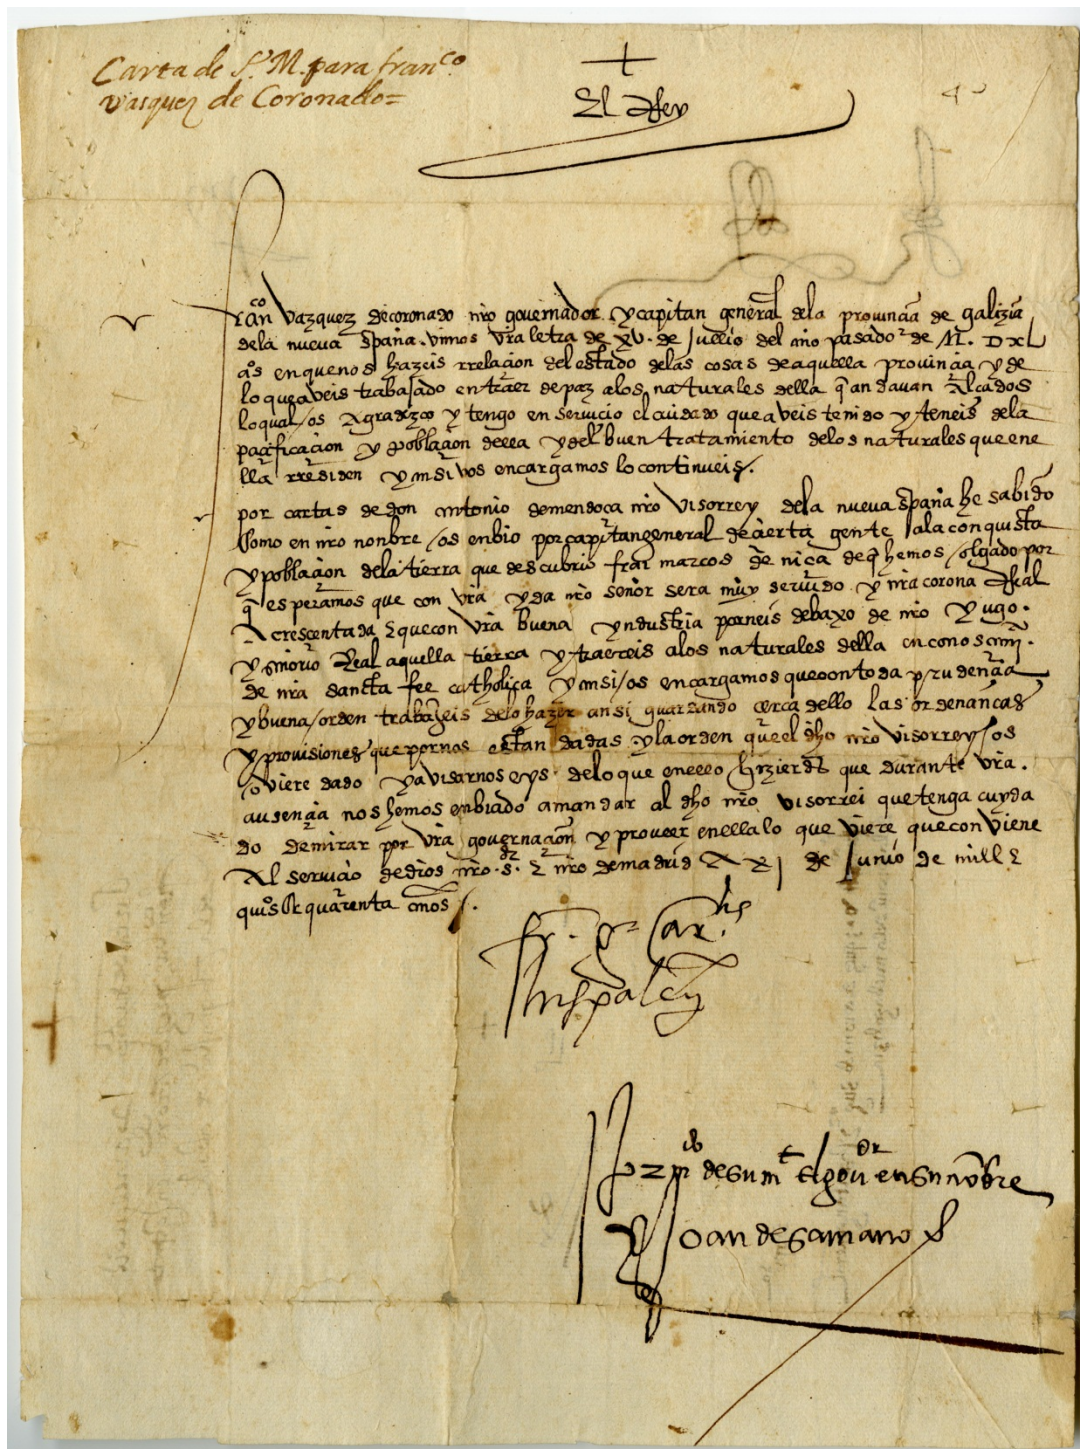 Carta de S. M. para franco
vasquez de Coronado=
El Rey
franco Vazquez de coronado nro governador y capitan general dela provincia de galizia
dela nueva españa. vimos vra letra de XV. de Jullio del año pasado de M. D XL
as en que nos hazeis rrelacion del estado delas cosas de aquella provincia y de
lo que aveis trabajado en traer de paz alos naturales della q andavan Alcados
lo qual/os Agradezco y tengo en servicio el cuidado que aveis tenido y teneis dela
pacificacion y poblacion della y del buen tratamiento delos naturales que ene
lla rresiden y ansi vos encargamos lo continueis/.
por cartas de don antonio de mendoca nro Visorrey dela nueva españa he sabido
como en nro nonbre/os enbio por capitan general de cierta gente / ala conquista
y poblacion dela tierra que descubrio frai marcos de nica de q hemos/olgado por
q esperamos que con vra yda nro señor sera muy servido y nra corona Real
Acrescentada E que con vra buena yndustria porneis debaxo de nro yugo.
y señorio Real aquella tierra y traereis alos naturales della en conoscimi.
de nra sancta fee catholica y ansi/os encargamos que con toda prudencia
y buena/orden trabajeis delo hazer ansi guardando cerca dello las ordenancas
y provisiones que por nos estan dadas y la orden que el dho nro Visorrey/os
oviere dado y avisarnos eys delo que en ello hizierdes que durante vra.
ausencia nos hemos enbiado a mandar al dho nro visorrei que tenga cuyda
do de mirar por vra governacion y proveer en ella lo que viere que con viene
Al servicio de dios nro.s. E nro de madrid A XXI de Junio de mill E
quis E quarenta años/.
fr. g. Carlis
hispalen
Por mdo de su mt El govor en su nobre
Joan de Samano